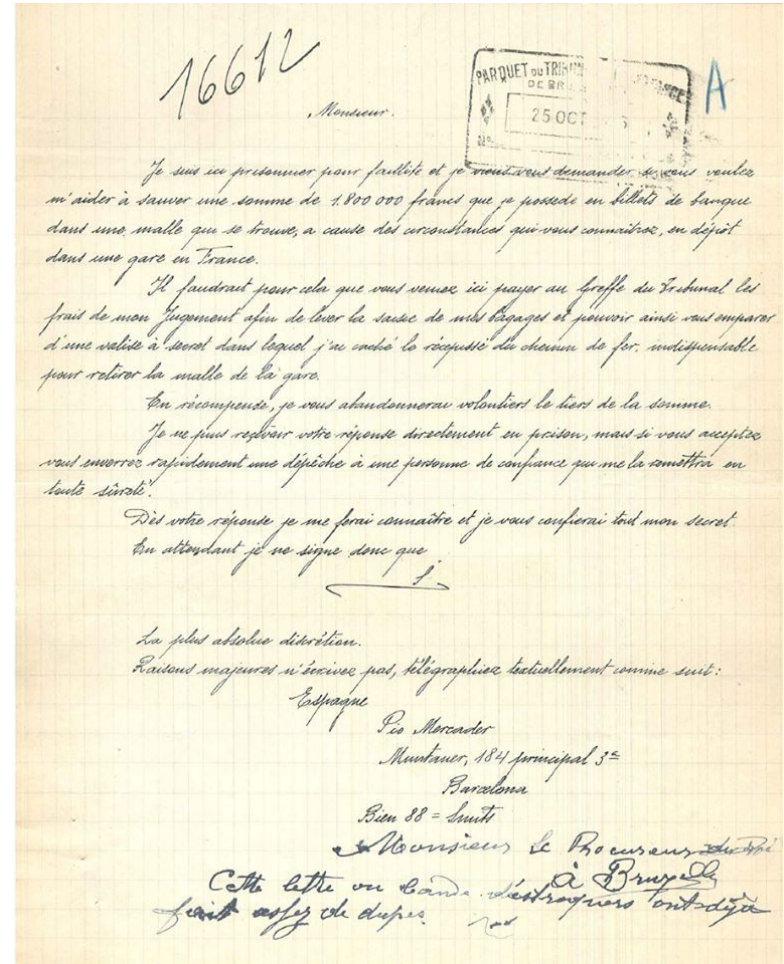 16612
PARQUET DU TRIB
DE BR
25 OCT
A
Monsieur.
Je suis ici prisonnier pour faillite et je viens vous demander si vous voulez
m'aider à sauver une somme de 1.800 000 francs que je possede en billets de banque
dans une malle que se trouve, a cause des circonstances qui vous connaitrez, en dépôt
dans une gare en France.
Il faudrait pour cela que vous venez ici payer au Greffe du Tribunal les
frais de mon Jugement afin de lever la saisie de mes bagages et pouvoir ainsi vous emparer
d'une valise à secret dans lequel j'ai caché le récépissé du chemin de fer, indispensable
pour retirer la malle de la gare.
En récompense, je vous abandonnerai volontiers le tiers de la somme.
Je ne puis reçevoir votre réponse directement en prison, mais si vous acceptez
vous enverrez rapidement une dépêche à une personne de confiance qui me la remettra en
toute sûreté.
Dès votre réponse je me ferai connaître et je vous confierai tout mon secret.
En attendant je ne signe donc que
S.
La plus absolue discrétion.
Raisons majeures n'écrivez pas, télégraphiez textuellement comme suit:
Espagne
Pio Mercader
Muntaner, 184 principal 3ª
Barcelona
Bien 88 = Smits
Monsieur le Procureur du Roi
à Bruxelles
Cette lettre ou bande d'estroquers ont déjà
fait assez de dupes.